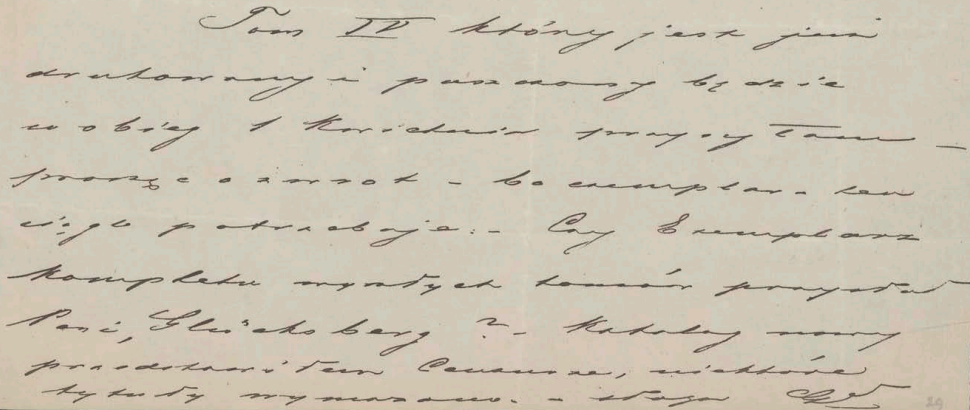 Tom IV który jest już
drukowany i puszczony będzie
w obieg 1 Kwietnia przysyłam –
prosząc o zwrot – bo exemplarz ten
ciągle potrzebuję. – Czy Exemplarz
kompletu wyszłych tomów przysłał
Pani, Glücksberg ? – Katalog nowy
przedstawiłem Cenzurze, niektóre
tytuły wymazano. – sługa
29